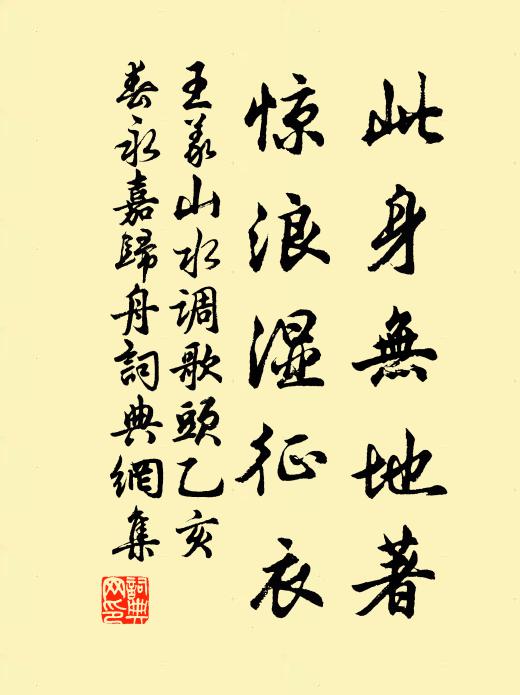 此身無地著
惊浪湿征衣
王义山水调歌頭乙亥
春永嘉歸舟詞典網集
詞典